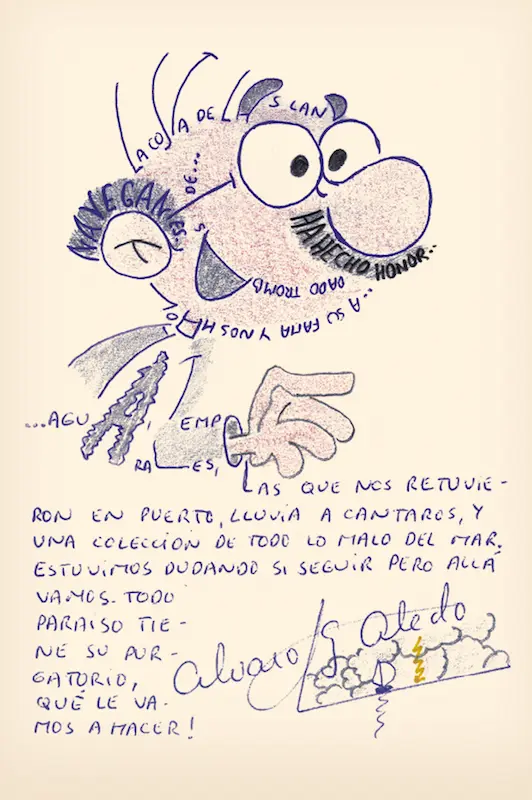 NAVEGANTES..
LA COSTA DE ISLAN
HA HECHO
HONOR..
...A SU FAMA Y NOS HA
DADO TROMB
S
DE...
...AGUA,
TEMP
RALES,
LAS QUE NOS RETUVIE-
RON EN PUERTO, LLUVIA A CANTAROS, Y
UNA COLECCION DE TODO LO MALO DEL MAR.
ESTUVIMOS DUDANDO SI SEGUIR PERO ALLÁ
VAMOS. TODO
PARAISO TIE-
NE SU PUR-
GATORIO,
QUÉ LE VA-
MOS A HACER!
alvaro G Aledo